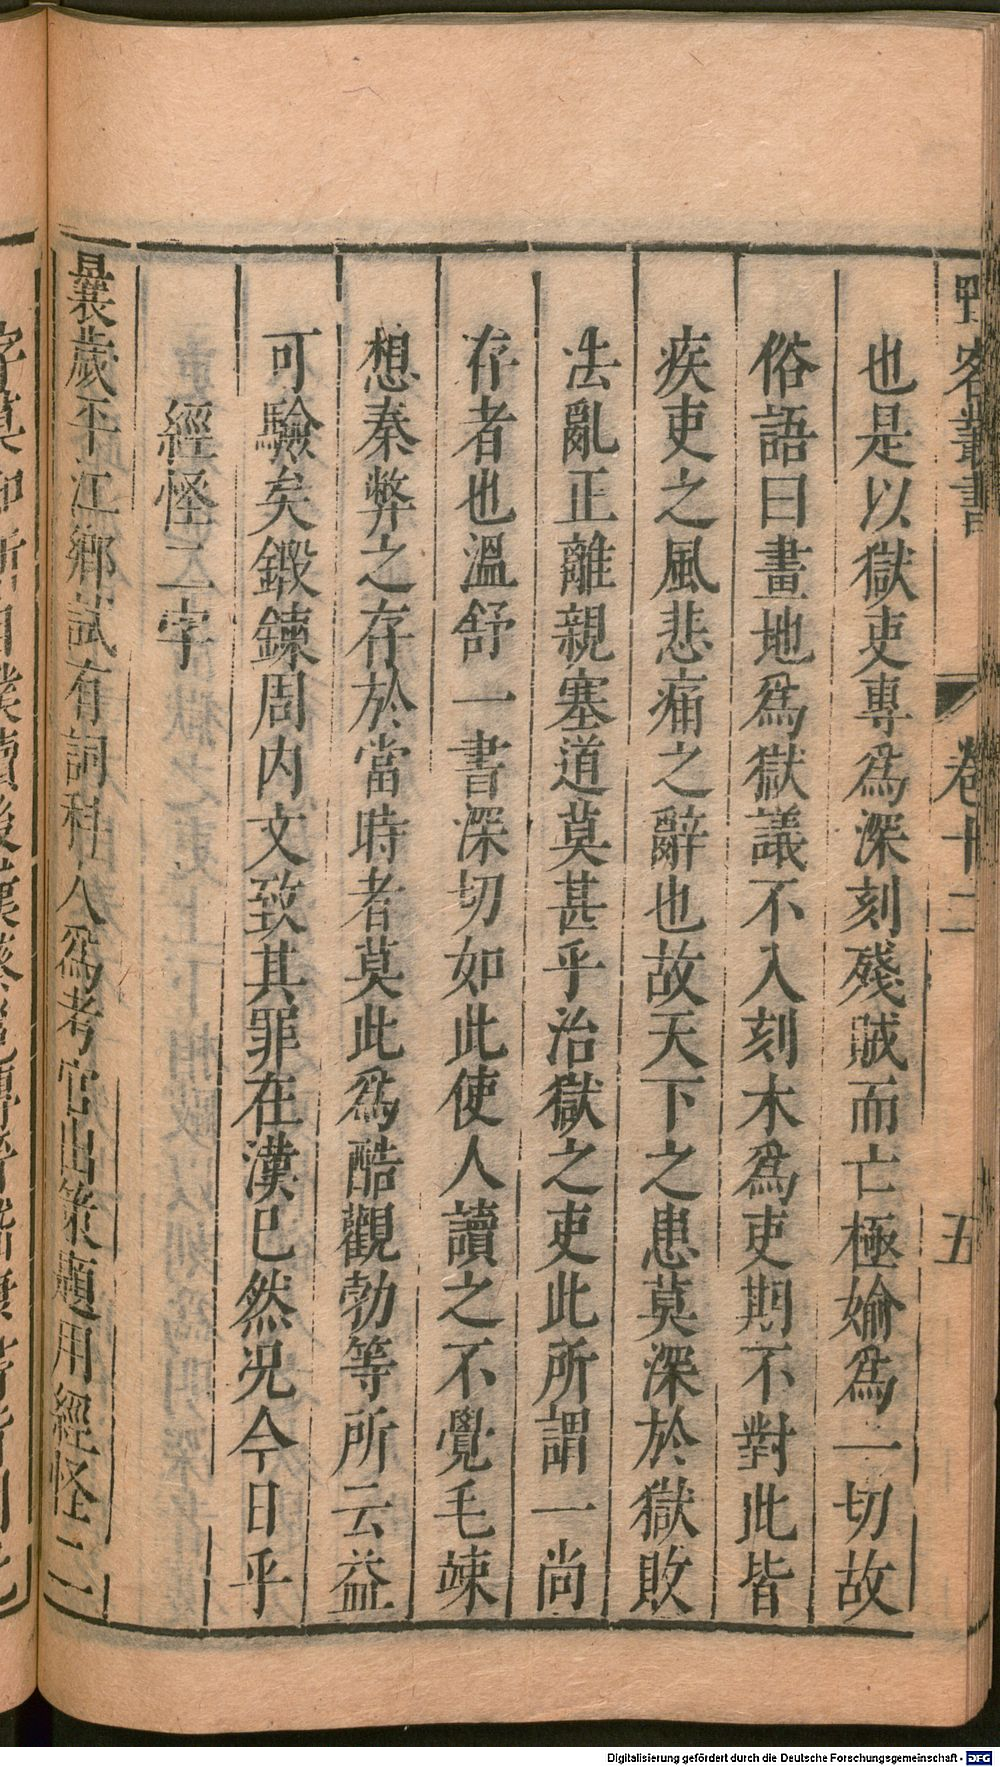 野客叢書 卷十二 五
也是以獄吏專爲深刻殘賊而亡極媮爲一切故
俗語曰畫地爲獄議不入刻木爲吏期不對此皆
疾吏之風悲痛之辭也故天下之患莫深於獄敗
法亂正離親塞道莫甚乎治獄之吏此所謂一尚
存者也溫舒一書深切如此使人讀之不覺毛竦
想秦弊之存於當時者莫此爲酷觀勃等所云益
可驗矣鍛鍊周内文致其罪在漢已然况今日乎
經怪二字
曩歲平江鄉試有詞科人爲考官出策題用經怪二
Digitalisierung gefördert durch die Deutsche Forschungsgemeinschaft - DFG